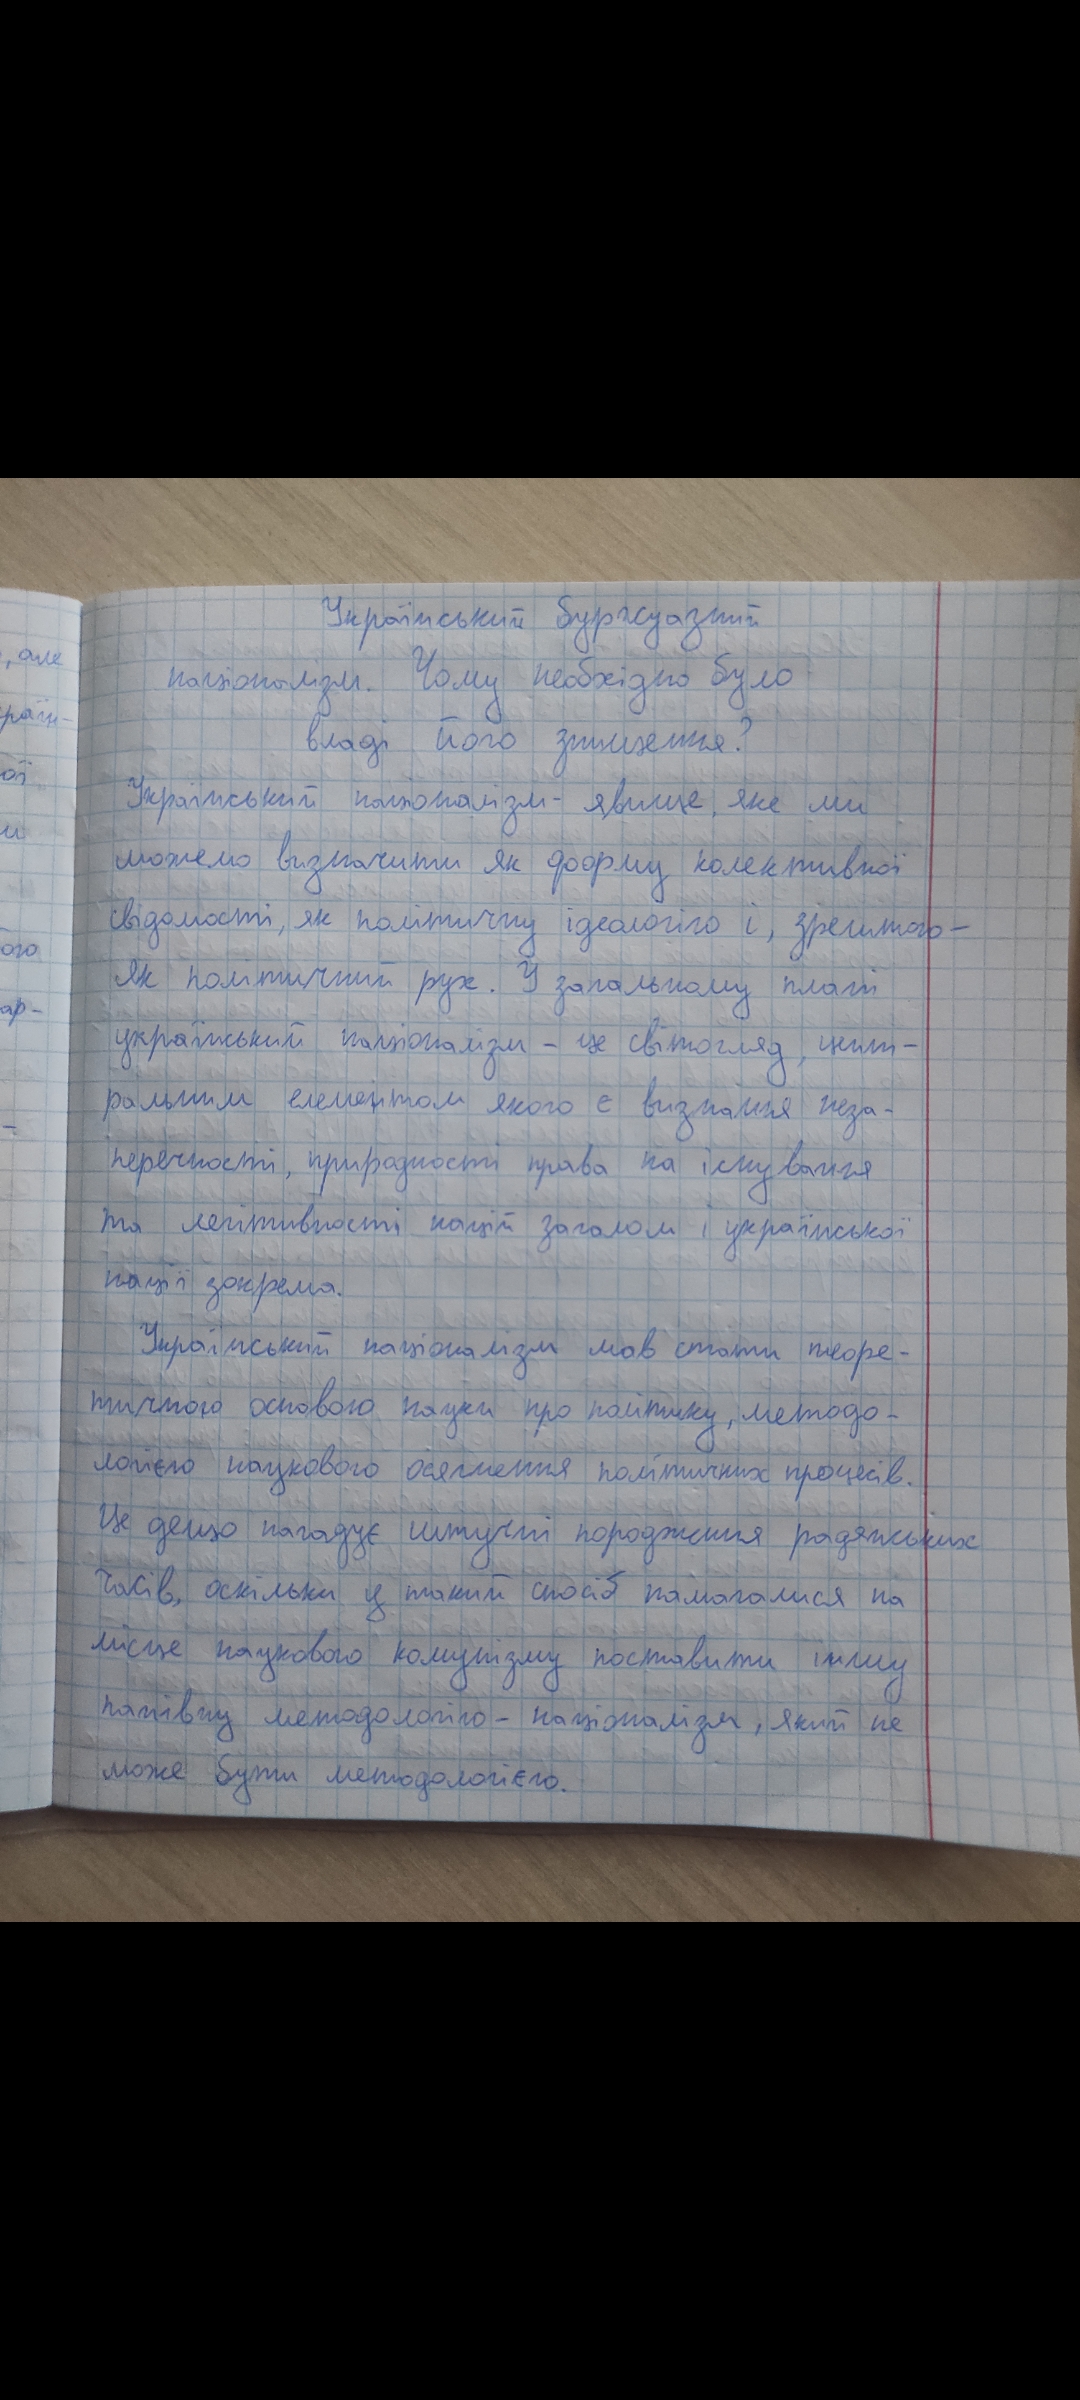 , але
раїн-
ої
и
ого
ар-
-
Український буржуазний
націоналізм. Чому необхідно було
владі його знищення?
Український націоналізм - явище, яке ми
можемо визначити як форму колективної
свідомості, як політичну ідеологію і, зрештою -
як політичний рух. У загальному плані
український націоналізм - це світогляд, цент-
ральним елементом якого є визнання неза-
перечності, природності права на існування
та легітивності націй загалом і української
нації зокрема.
Український націоналізм мав стати теоре-
тичною основою науки про політику, методо-
логією наукового осягнення політичних процесів.
Це дещо нагадує штучні породження радянських
часів, оскільки у такий спосіб намагалися на
місце наукового комунізму поставити іншу
панівну методологію - націоналізм, який не
може бути методологією.